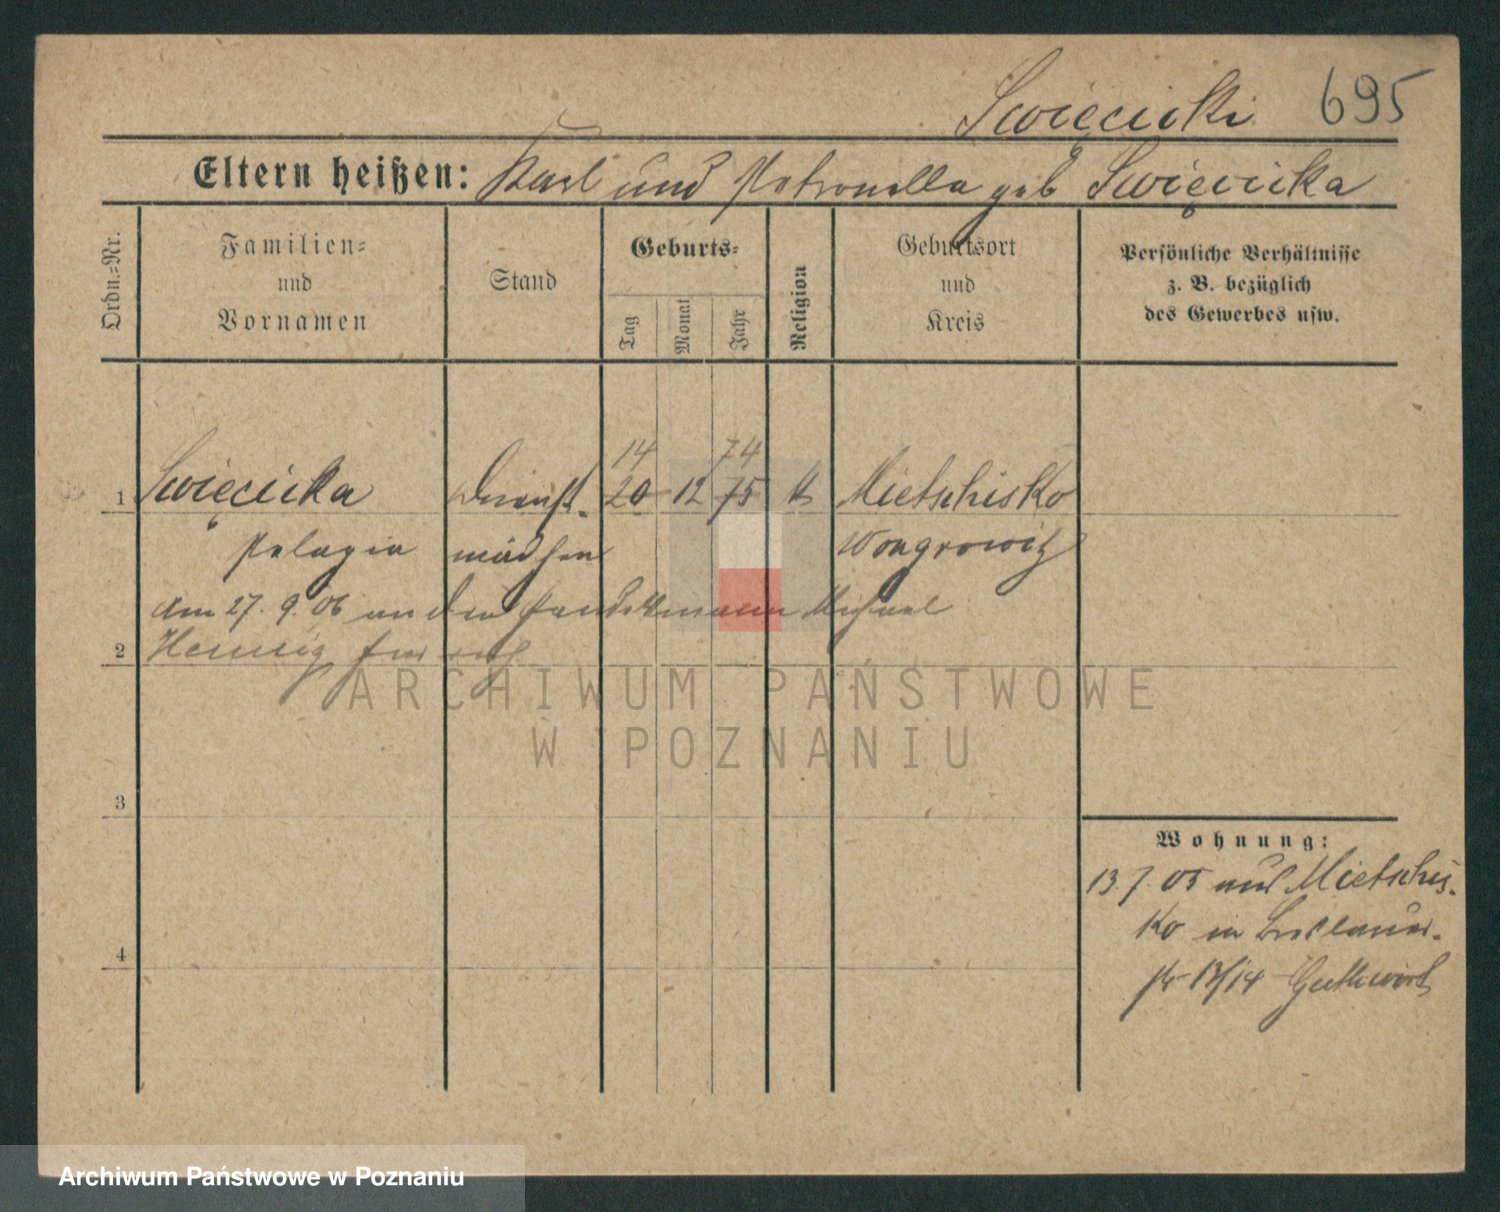 Swięcicki 695
Eltern heißen: Karl und Petronella geb Swięcicka
Ordn.=Nr.
Familien=
und
Vornamen
Stand
Geburts=
Tag
Monat
Jahr
Religion
Geburtsort
und
Kreis
Persönliche Verhältnisse
z. B. bezüglich
des Gewerbes usw.
14 74
1 Swięcicka Dienst- 20 12 75 k Mietschisko
Pelagia mädchen Wongrowitz
am 27. 9. 06 an den Michael
2 Hennig
3
4
Wohnung:
13.7.05 aus Mietschis-
ko in Breslauer-
str 13/14
ARCHIWUM PAŃSTWOWE
W POZNANIU
Archiwum Państwowe w Poznaniu